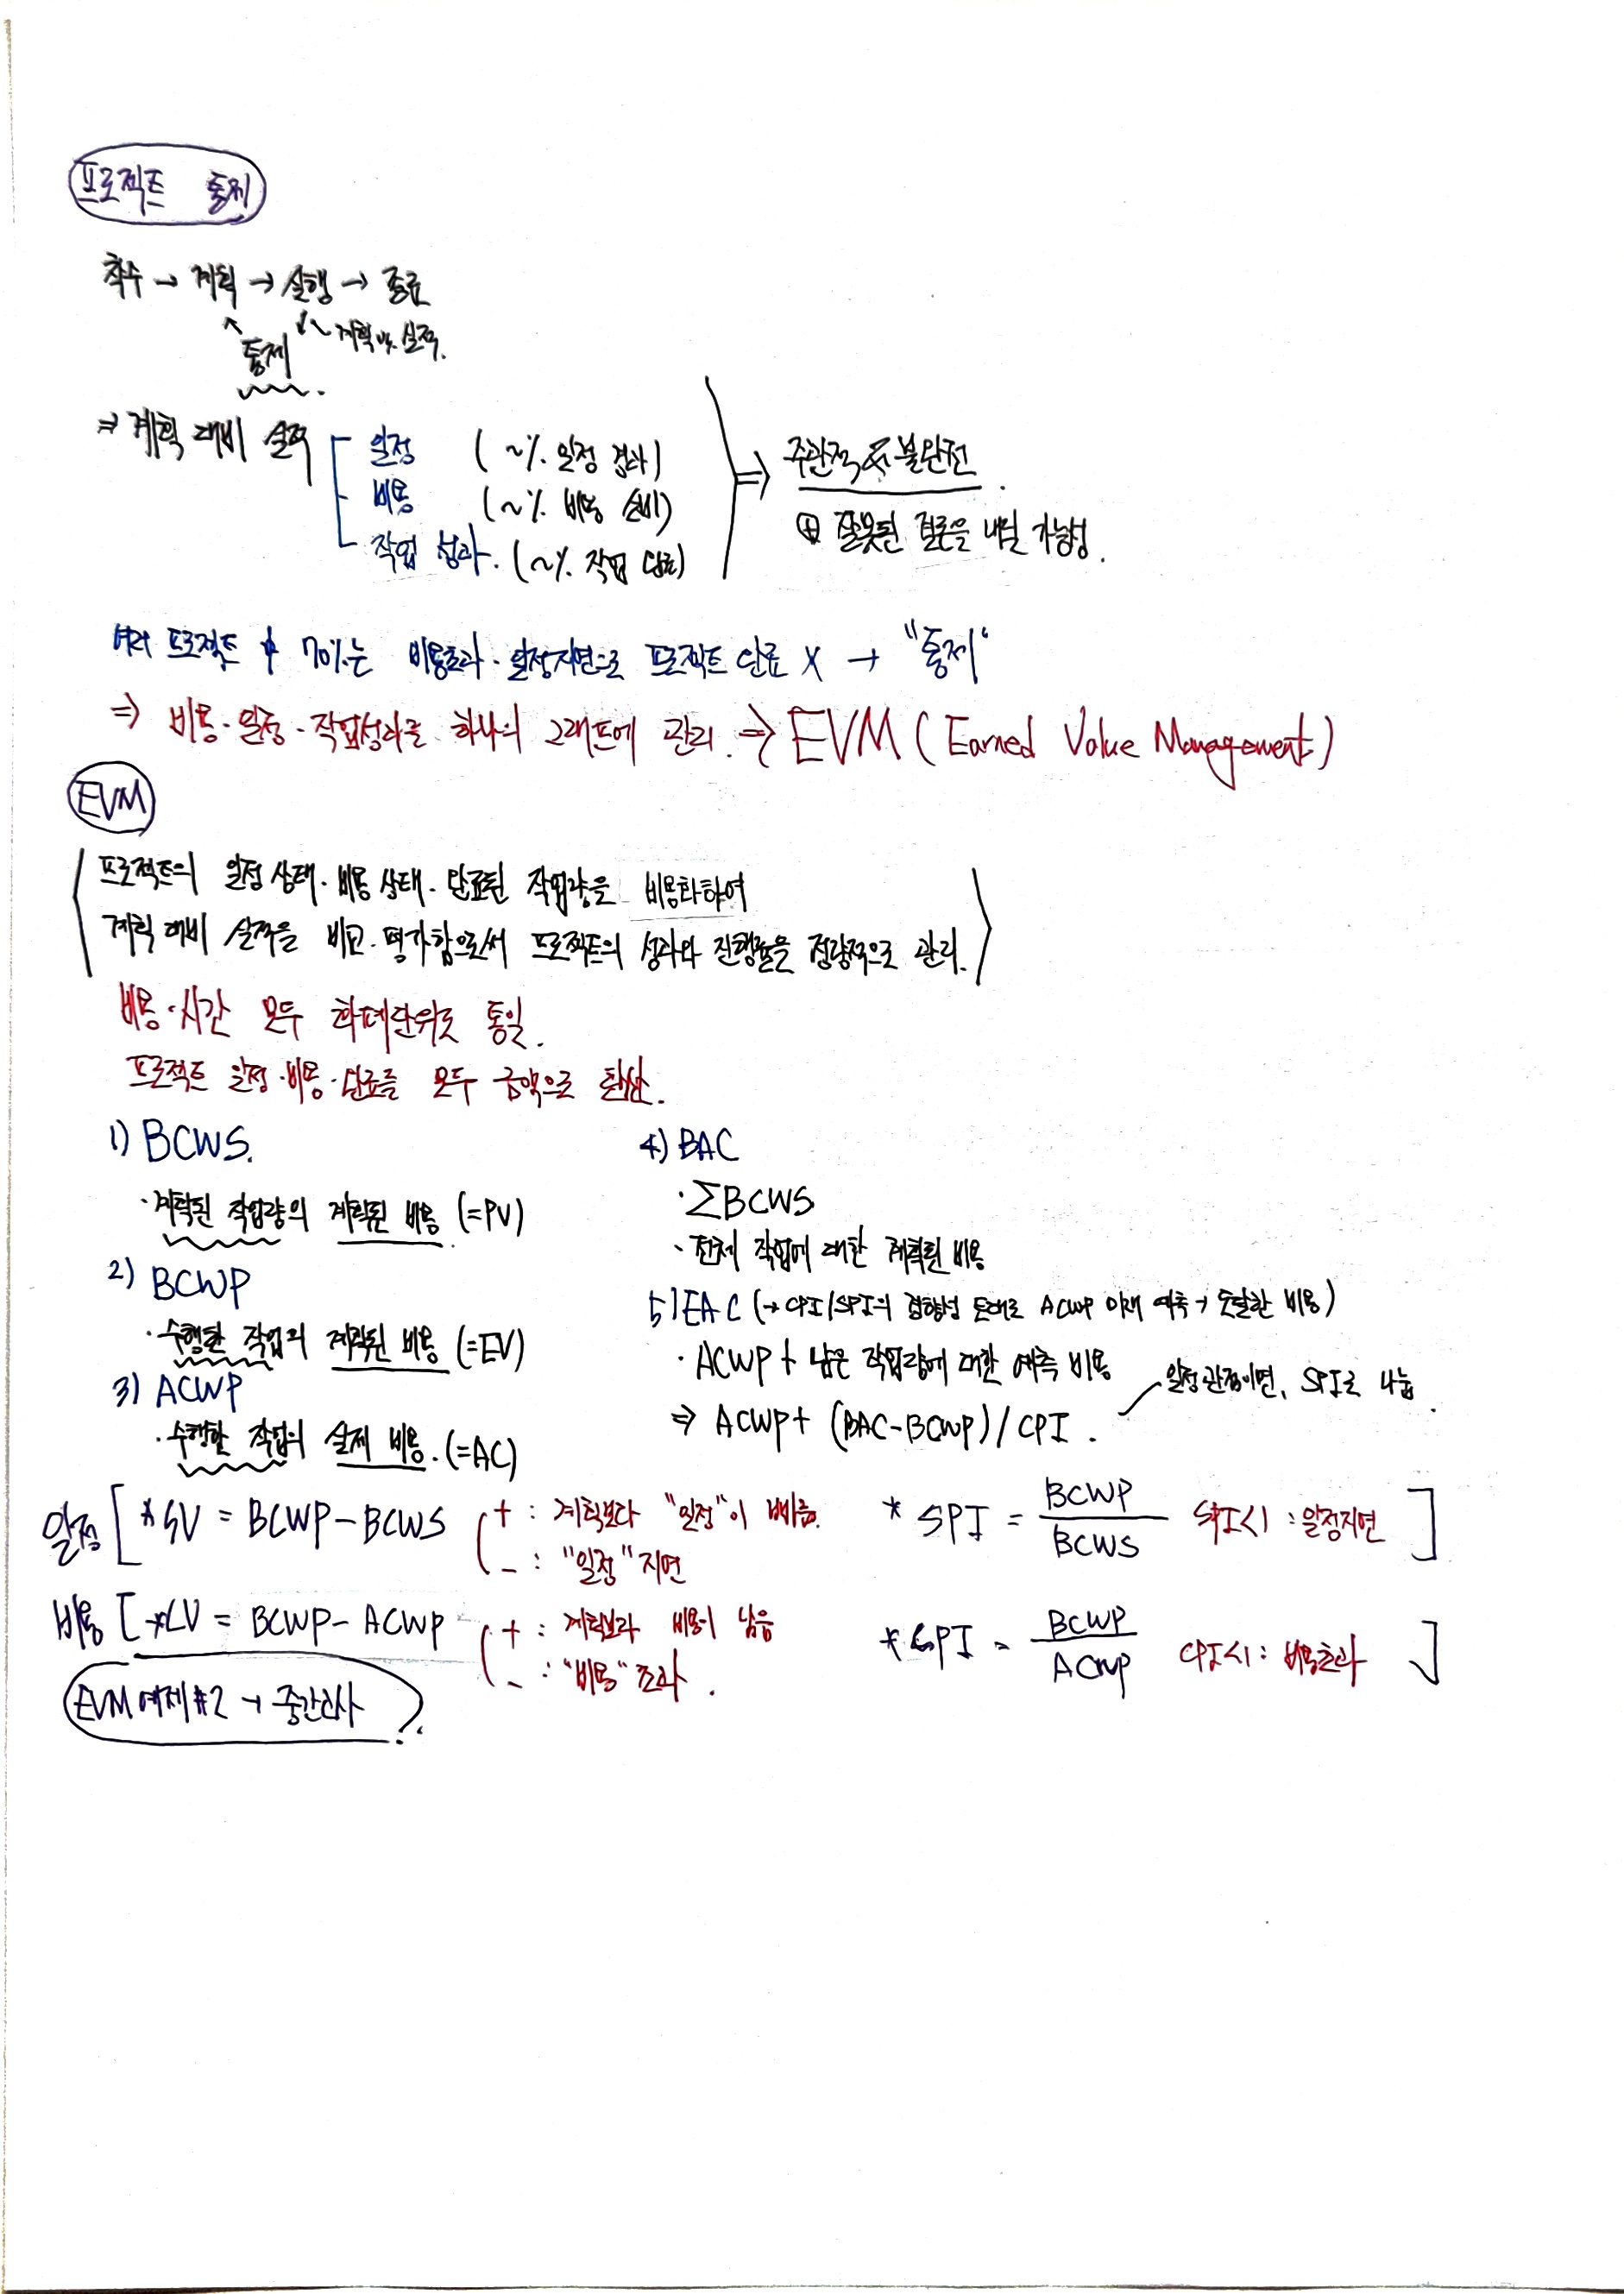 프로젝트 통제
착수 → 계획 → 실행 → 종료
통제
계획 vs. 실적.
⇒ 계획 대비 실적
일정 (~% 일정 경과)
비용 (~% 비용 소비)
작업 성과. (~% 작업 완료)
⇒ 주관적 & 불완전.
⊕ 잘못된 결론을 내릴 가능성.
여러 프로젝트 中 70%는 비용초과·일정지연으로 프로젝트 완료 X → "통제"
⇒ 비용·일정·작업성과를 하나의 그래프에 관리. ⇒ EVM (Earned Value Management)
EVM
프로젝트의 일정 상태·비용 상태·완료된 작업량을 비용화하여
계획 대비 실적을 비교·평가함으로써 프로젝트의 성과와 진행률을 정량적으로 관리.
비용·시간 모두 화폐단위로 통일.
프로젝트 일정·비용·완료를 모두 금액으로 환산.
1) BCWS.
· 계획된 작업량의 계획된 비용 (=PV)
2) BCWP
· 수행한 작업의 계획된 비용 (=EV)
3) ACWP
· 수행한 작업의 실제 비용. (=AC)
4) BAC
· ∑BCWS
· 전체 작업에 대한 계획된 비용
5) EAC (→ CPI/SPI의 경향성 토대로 ACWP 미래 예측 → 도달한 비용)
· ACWP + 남은 작업량에 대한 예측 비용
⇒ ACWP + (BAC-BCWP) / CPI.
일정관점이면, SPI로 나눔.
일정 [ *SV = BCWP - BCWS
+ : 계획보다 "일정"이 빠름.
- : "일정" 지연
* SPI = BCWP / BCWS SPI<1 : 일정지연 ]
비용 [ *CV = BCWP - ACWP
+ : 계획보다 비용이 남음
- : "비용" 초과.
* CPI = BCWP / ACWP CPI<1 : 비용초과 ]
EVM 예제 #2 → 중간고사